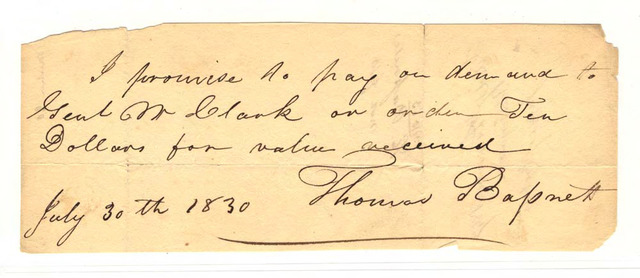 I promise to pay on demand to
Gent W Clark or order Ten
Dollars for value received
July 30th 1830 Thomas Baſsnett